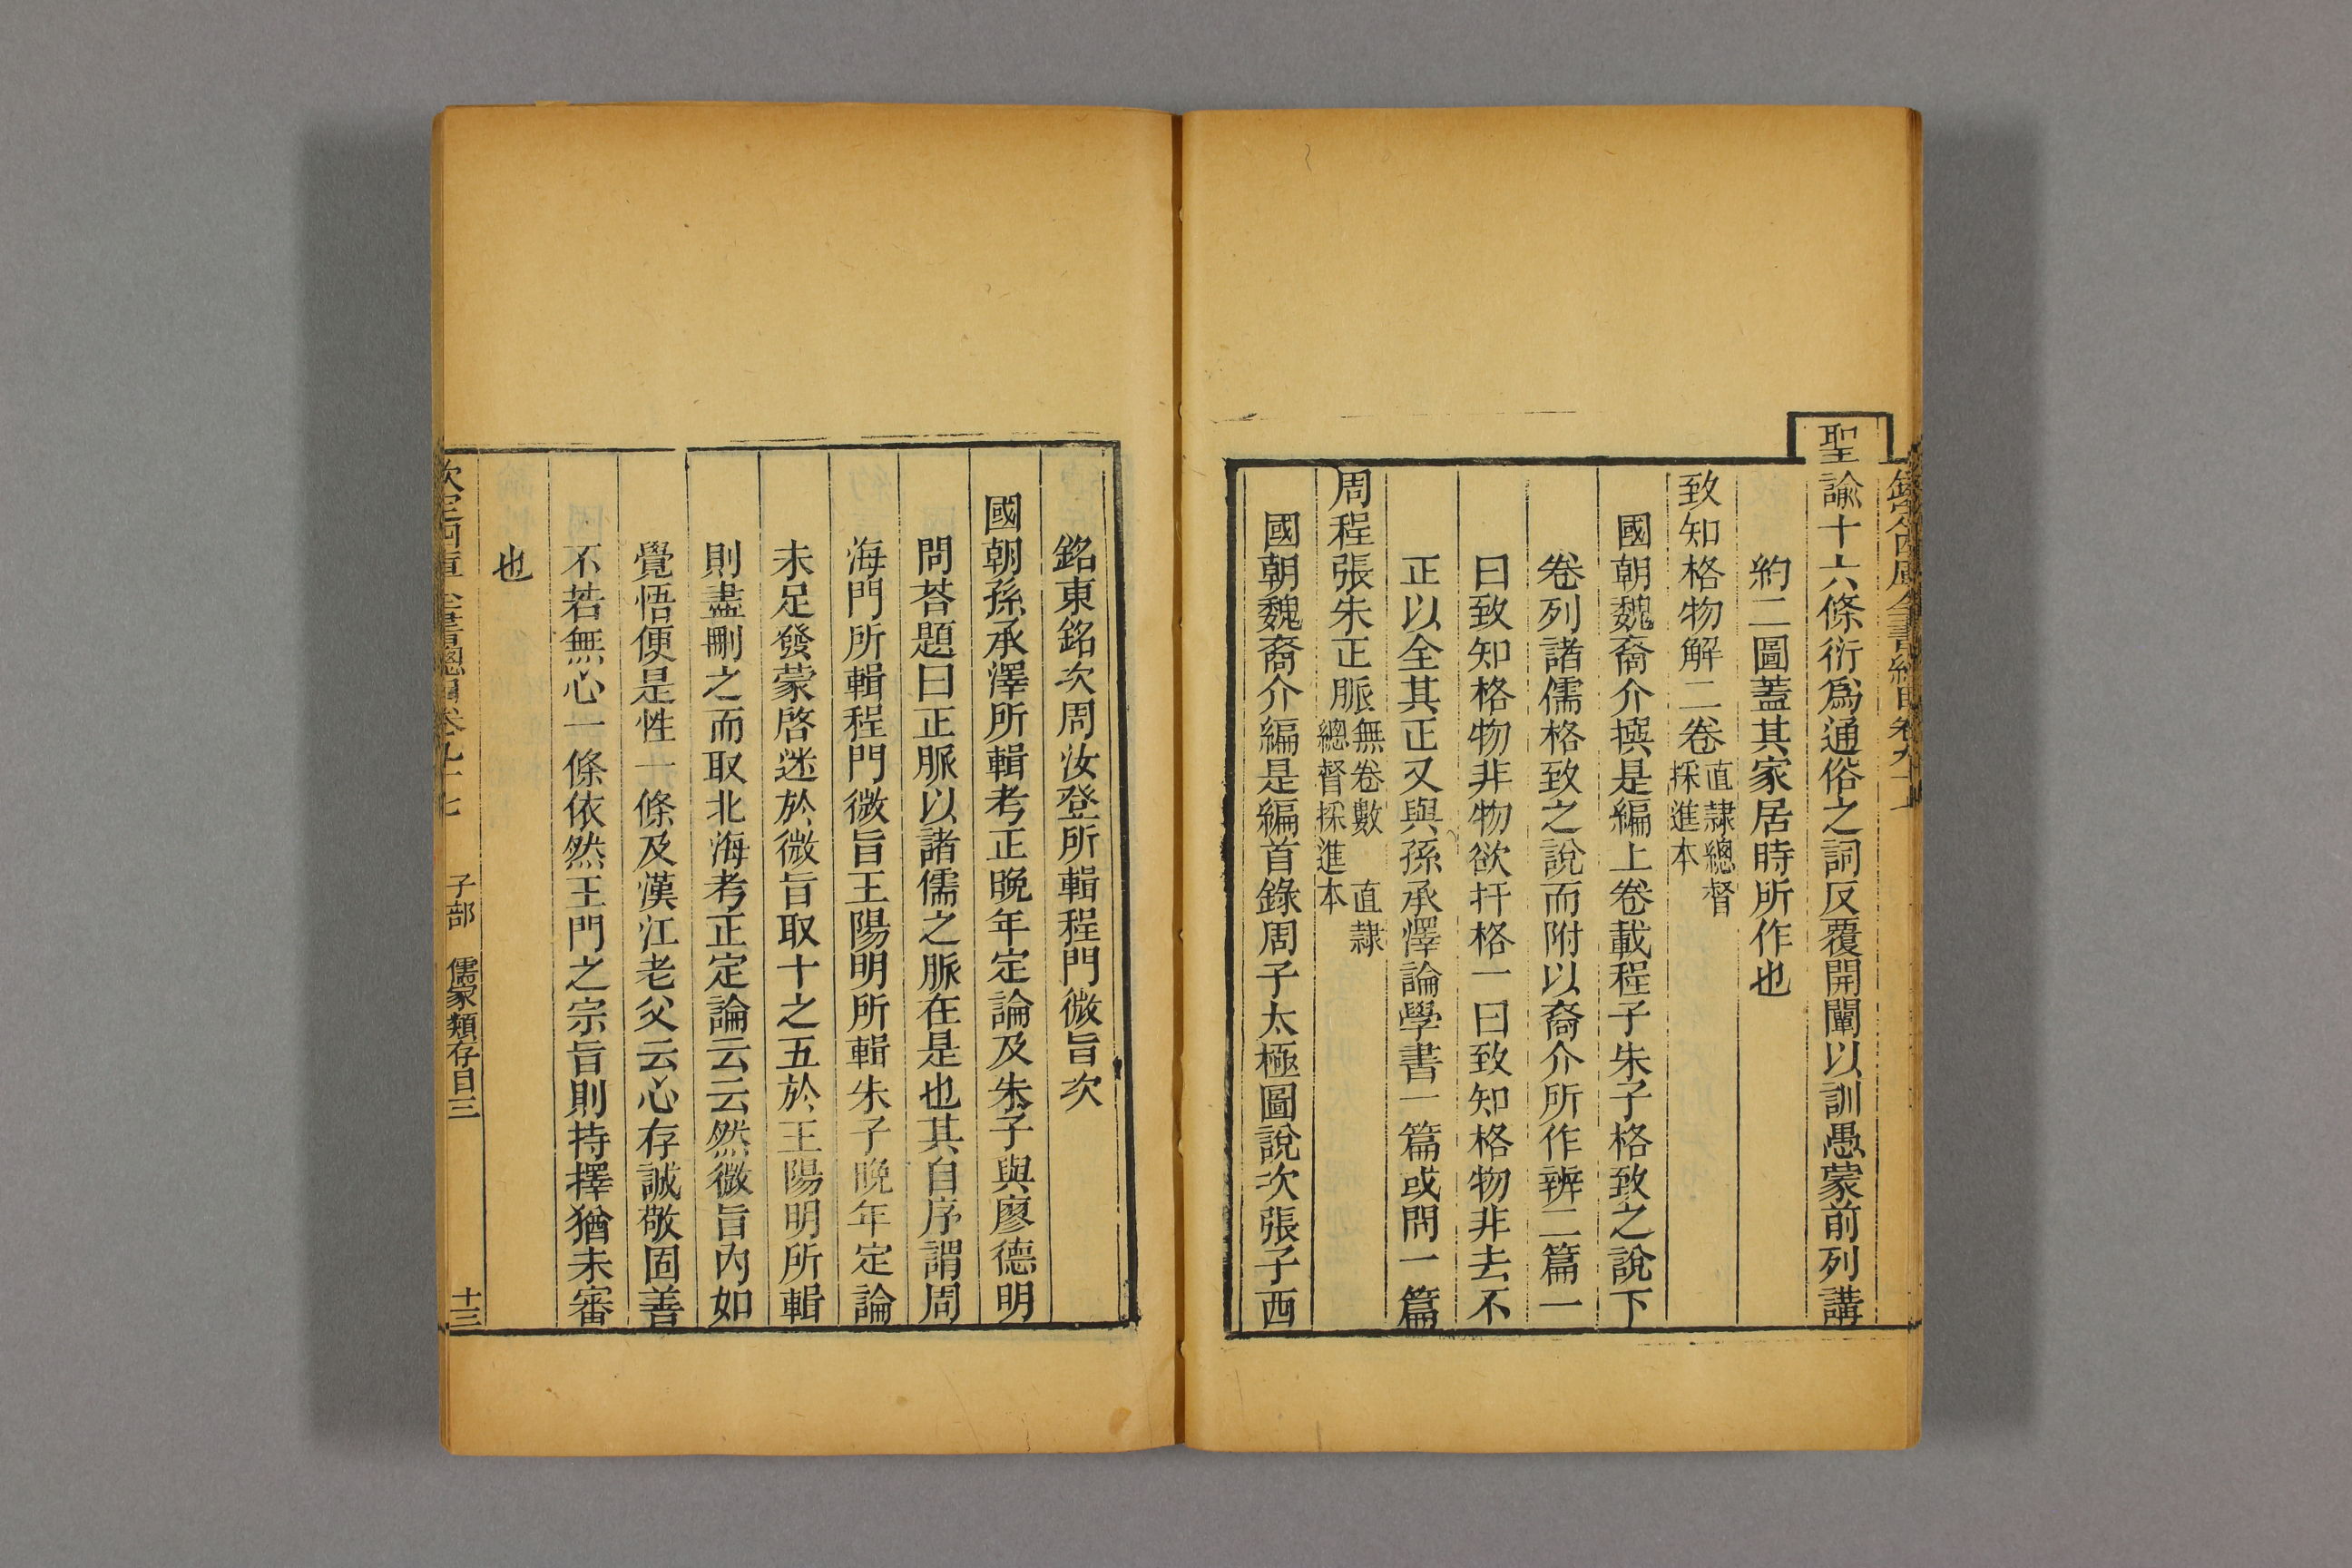 聖諭十六條衍爲通俗之詞反覆開闡以訓愚蒙前列講
約二圖蓋其家居時所作也
致知格物解二卷
直隸總督
採進本
國朝魏裔介撰是編上卷載程子朱子格致之說下
卷列諸儒格致之說而附以裔介所作辨二篇一
曰致知格物非物欲扞格一曰致知格物非去不
正以全其正又與孫承澤論學書一篇或問一篇
周程張朱正脈
無卷數 直隸
總督採進本
國朝魏裔介編是編首錄周子太極圖說次張子西
銘東銘次周汝登所輯程門微旨次
國朝孫承澤所輯考正晚年定論及朱子與廖德明
問荅題曰正脈以諸儒之脈在是也其自序謂周
海門所輯程門微旨王陽明所輯朱子晚年定論
未足發蒙啓迷於微旨取十之五於王陽明所輯
則盡刪之而取北海考正定論云云然微旨內如
覺悟便是性一條及漢江老父云心存誠敬固善
不若無心一條依然王門之宗旨則持擇猶未審
也
欽定四庫全書總目卷九十七 子部 儒家類存目三 十三